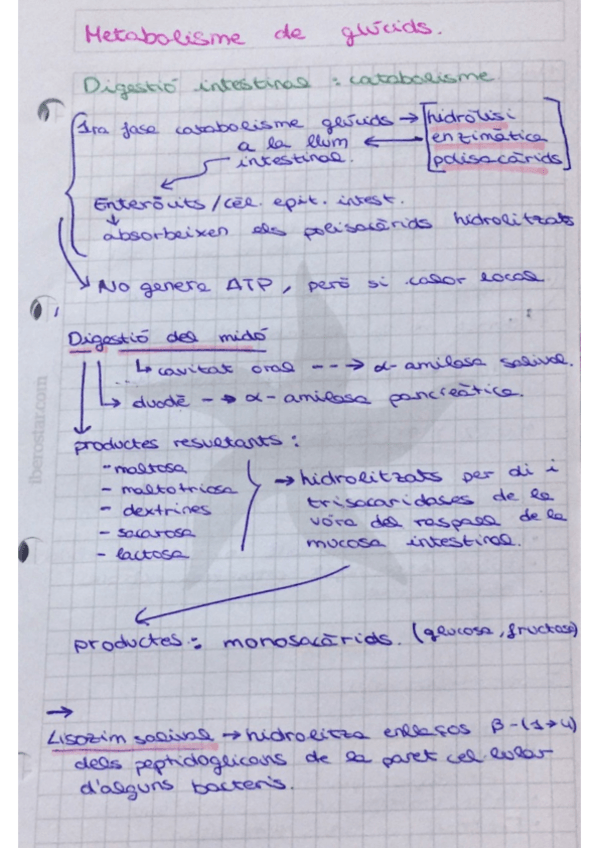 Metabolisme de glúcids.
Digestió intestinal : catabolisme
1ra fase catabolisme glúcids → hidròlisi
a la llum ← enzimàtica
intestinal. polisacàrids
Enteròcits / cèl. epit. intest.
absorbeixen els polisacàrids hidrolitzats
No genera ATP, però si calor local
Digestió del midó
cavitat oral ---> α-amilasa salival.
duodè --> α-amilasa pancreàtica.
productes resultants :
- maltosa
- maltotriosa
- dextrines
- sacarosa
- lactosa
→ hidrolitzats per di i
trisacaridases de la
vora del raspall de la
mucosa intestinal.
productes : monosacàrids. (glucosa, fructosa)
→
Lisozim salival → hidrolitza enllaços β-(1→4)
dels peptidoglicans de la paret cel·lular
d'alguns bacteris.
iberostar.com